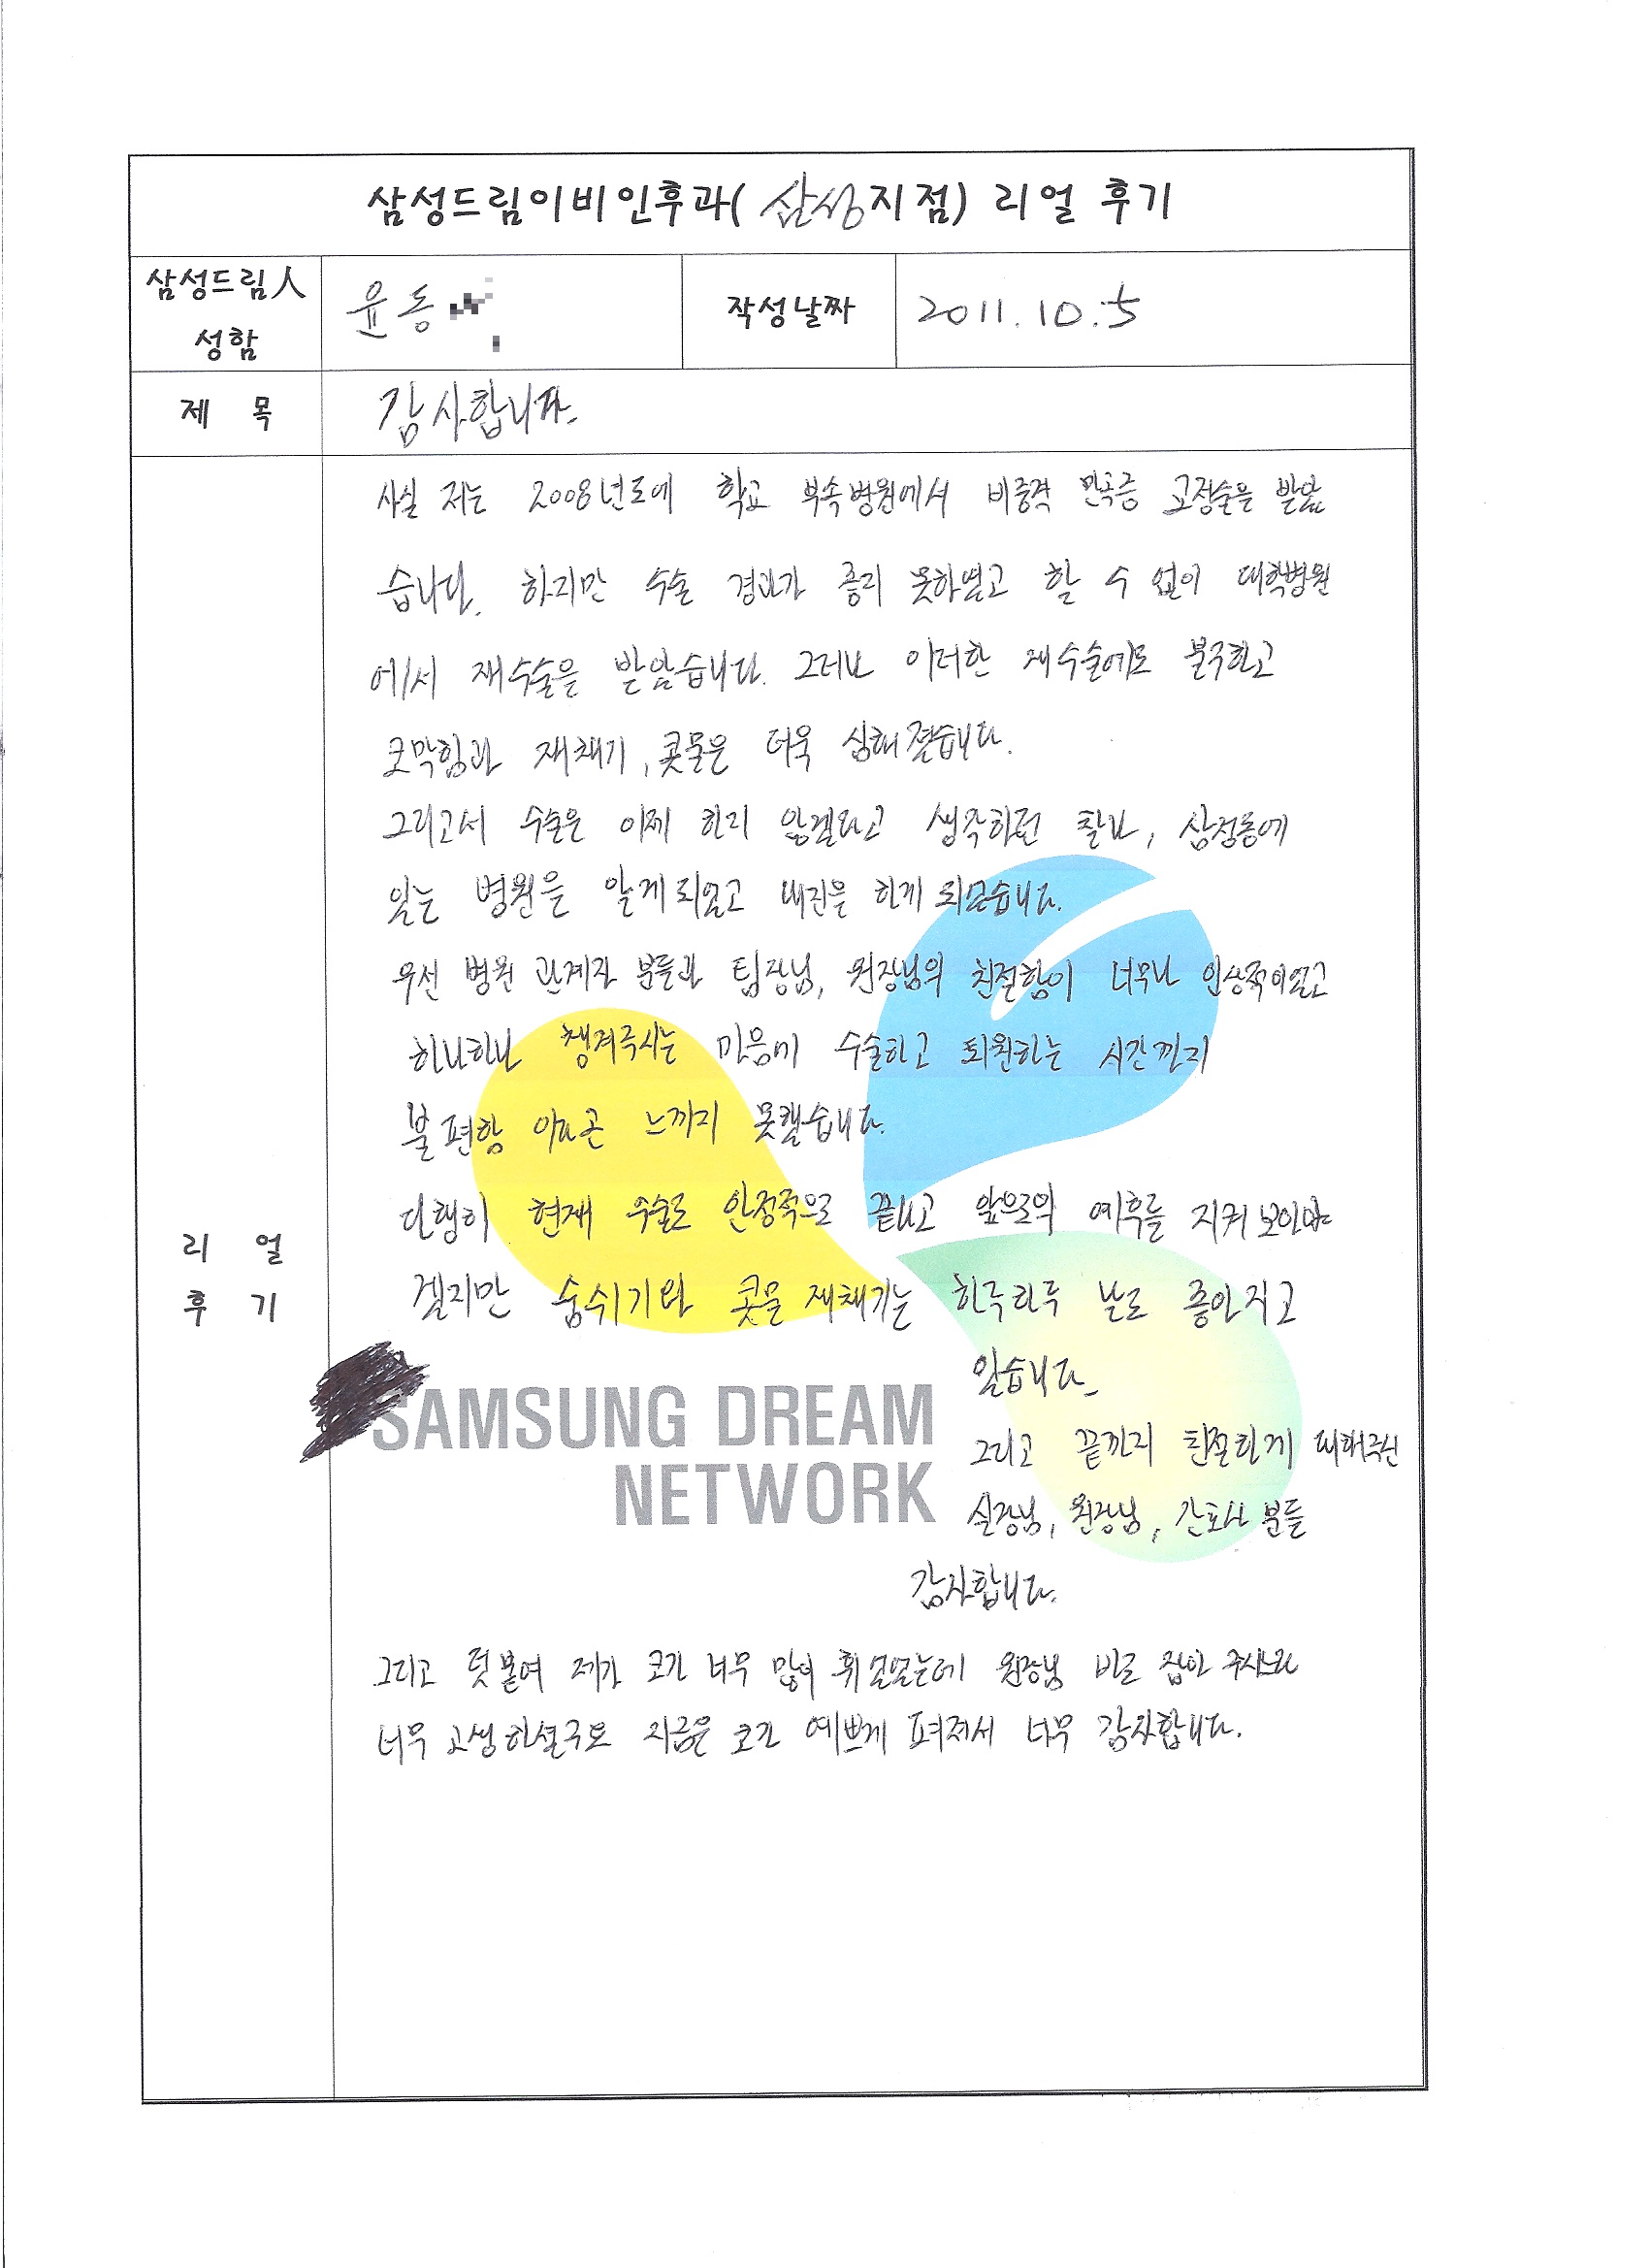 삼성드림이비인후과(삼성지점) 리얼 후기
삼성드림人
성함
윤동
작성날짜
2011.10.5
제 목
감사합니다.
사실 저는 2008년도에 학교 부속병원에서 비중격 만곡증 교정술을 받았
습니다. 하지만 수술 경과가 좋지 못하였고 할 수 없이 대학병원
에서 재수술을 받았습니다. 그러나 이러한 재수술에도 불구하고
코막힘과 재채기, 콧물은 더욱 심해졌습니다.
그리고서 수술은 이제 하지 않겠다고 생각하던 찰나, 삼성동에
있는 병원을 알게되었고 내진을 하게 되었습니다.
우선 병원 관계자 분들과 팀장님, 원장님의 친절함이 너무나 인상적이었고
하나하나 챙겨주시는 마음에 수술하고 퇴원하는 시간까지
불편함 이라곤 느끼지 못했습니다.
다행히 현재 수술도 안정적으로 끝나고 앞으로의 예후를 지켜보아야
겠지만 숨쉬기와 콧물 재채기는 하루하루 날로 좋아지고
있습니다.
SAMSUNG DREAM
NETWORK
그리고 끝까지 친절하게 대해주신
실장님, 원장님, 간호사 분들
감사합니다.
그리고 덧붙여 제가 코가 너무 많이 휘었었는데 원장님 바로 잡아 주시느라
너무 고생하셨구요 지금은 코가 예쁘게 펴져서 너무 감사합니다.
리 얼
후 기